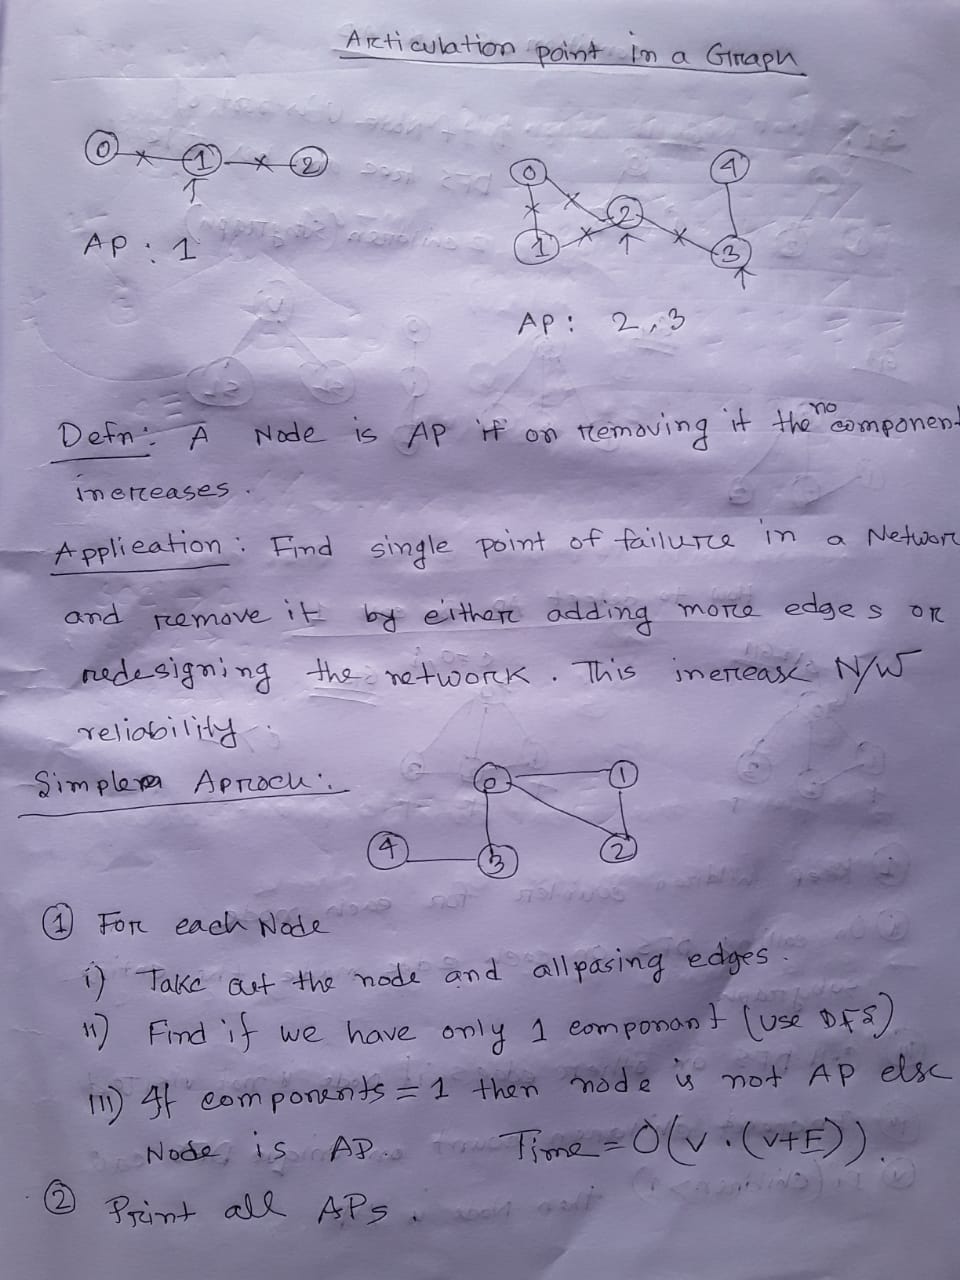 Articulation point in a Graph
0 1 2
0 4
2
1 3
AP : 1
AP : 2, 3
Defn : A Node is AP if on removing it the no component
increases.
Application : Find single point of failure in a Networ
and remove it by either adding more edges or
redesigning the network. This increase N/W
reliability.
Simple Aproch :
0 1
4 3 2
① For each Node
i) Take out the node and all pasing edges.
ii) Find if we have only 1 componant (use DFS)
iii) If components = 1 then node is not AP else
Node is AP. Time = O(V.(V+E)).
② Print all APs.